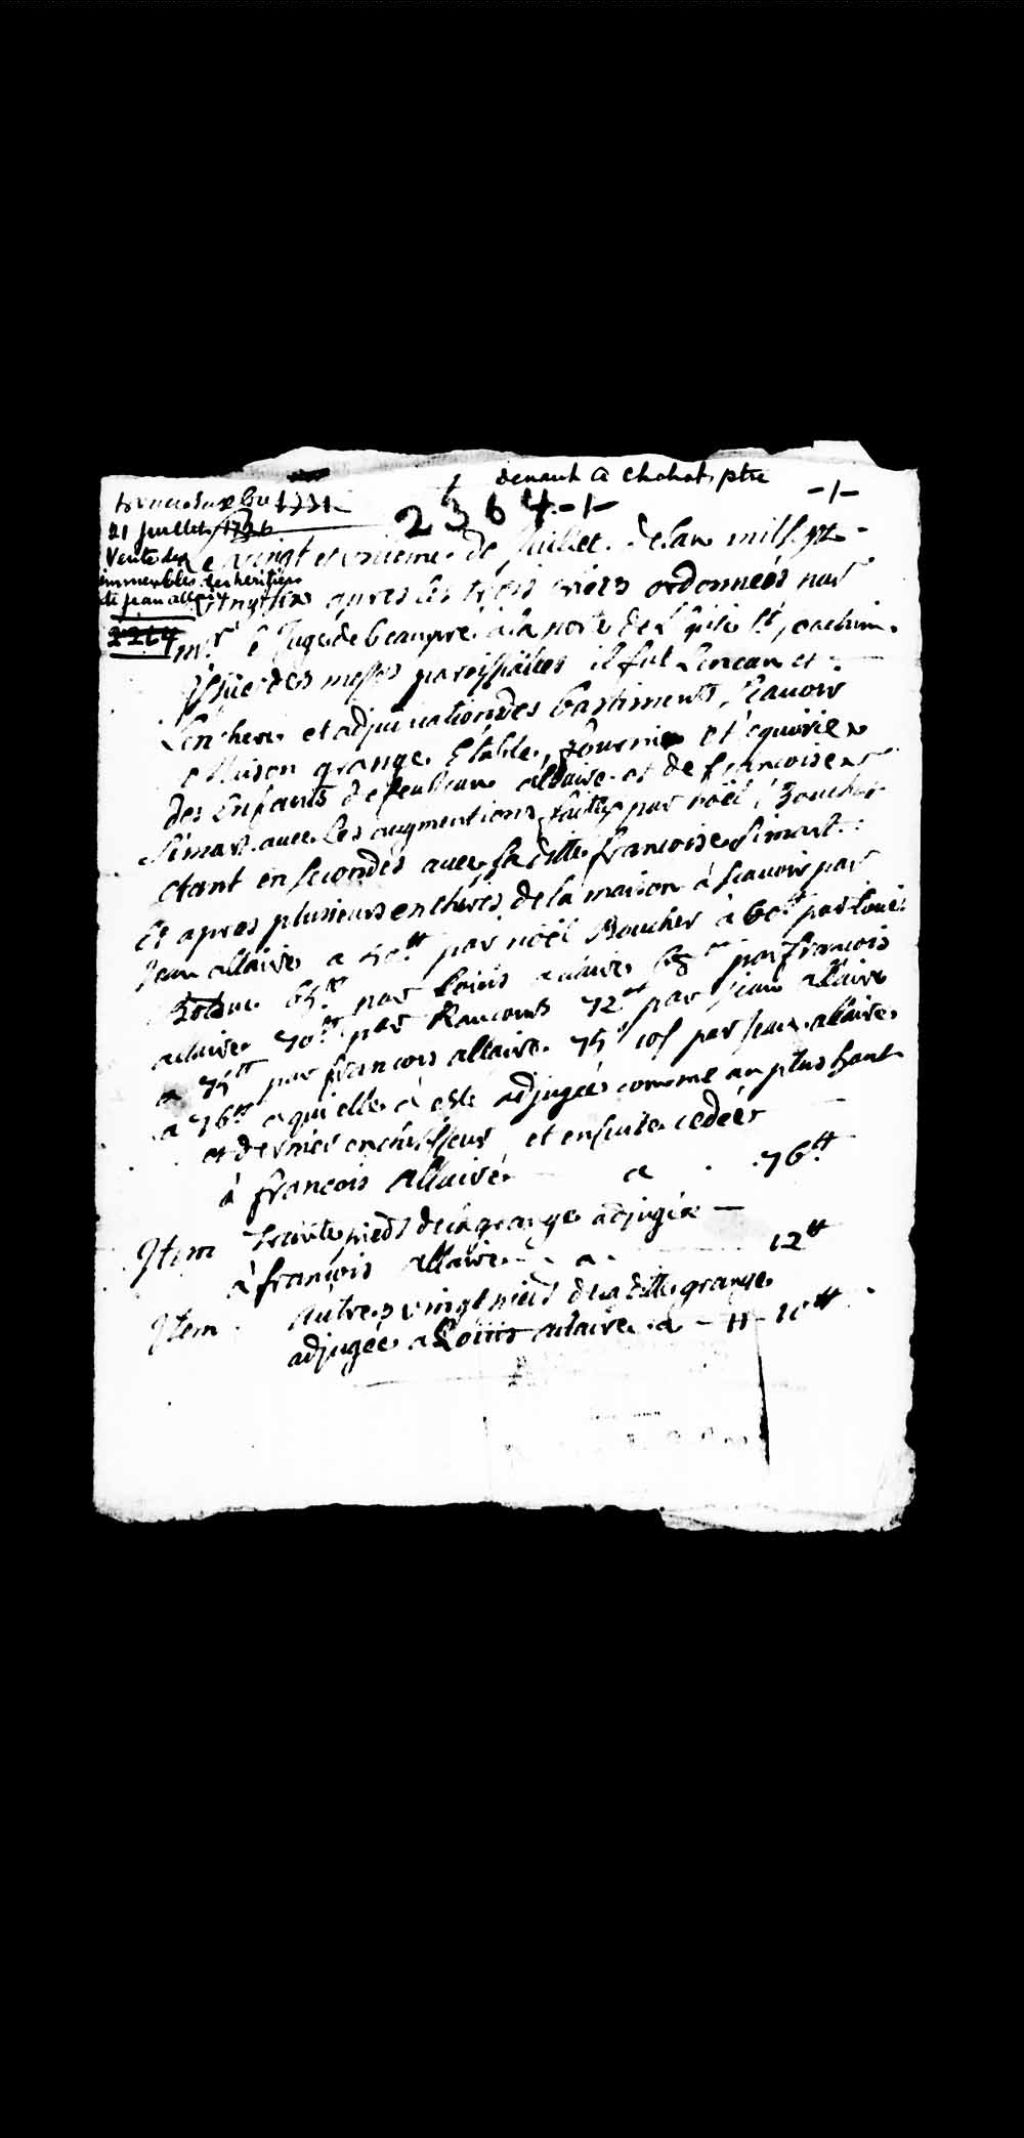 devant A Chohat ptre
-/-
2364-/-
21 juillet
Vente des
immeubles des heritiers
de jean allaire
2264
vingt et unieme de Juillet de lan mil sept
apres les trois criées ordonnées par
mr le Juge de beaupré a la porte de l'eglise St joachim
issüe des messes paroissialles il fut Lencan et
Lenchere et adjudication des bastiments, scavoir
Maison grange Etable, et equirie
des Enfants de feu Jean allaire et de francoise
Simart avec Les augmentions faites par noël Boucher
etant en secondes avec la ditte francoise Simart
Et apres plusieurs encheres de la maison à scavoir par
Jean allaire a par noël Boucher à 60tt par Louis
65tt par Louis allaire par francois
allaire 70tt par 72tt par jean allaire
a 75tt par francois allaire 75tt 10s par Jean allaire
a 76tt a qui elle a este adjugée comme au plus haut
et dernier encherisseur et ensuite cedée
à francois Allaire a 76tt
Item trente pieds de la grange adjugée
à françois allaire a 12tt
Item Autres vingt pieds de la ditte grange
adjugée a Loüis allaire a - 10tt